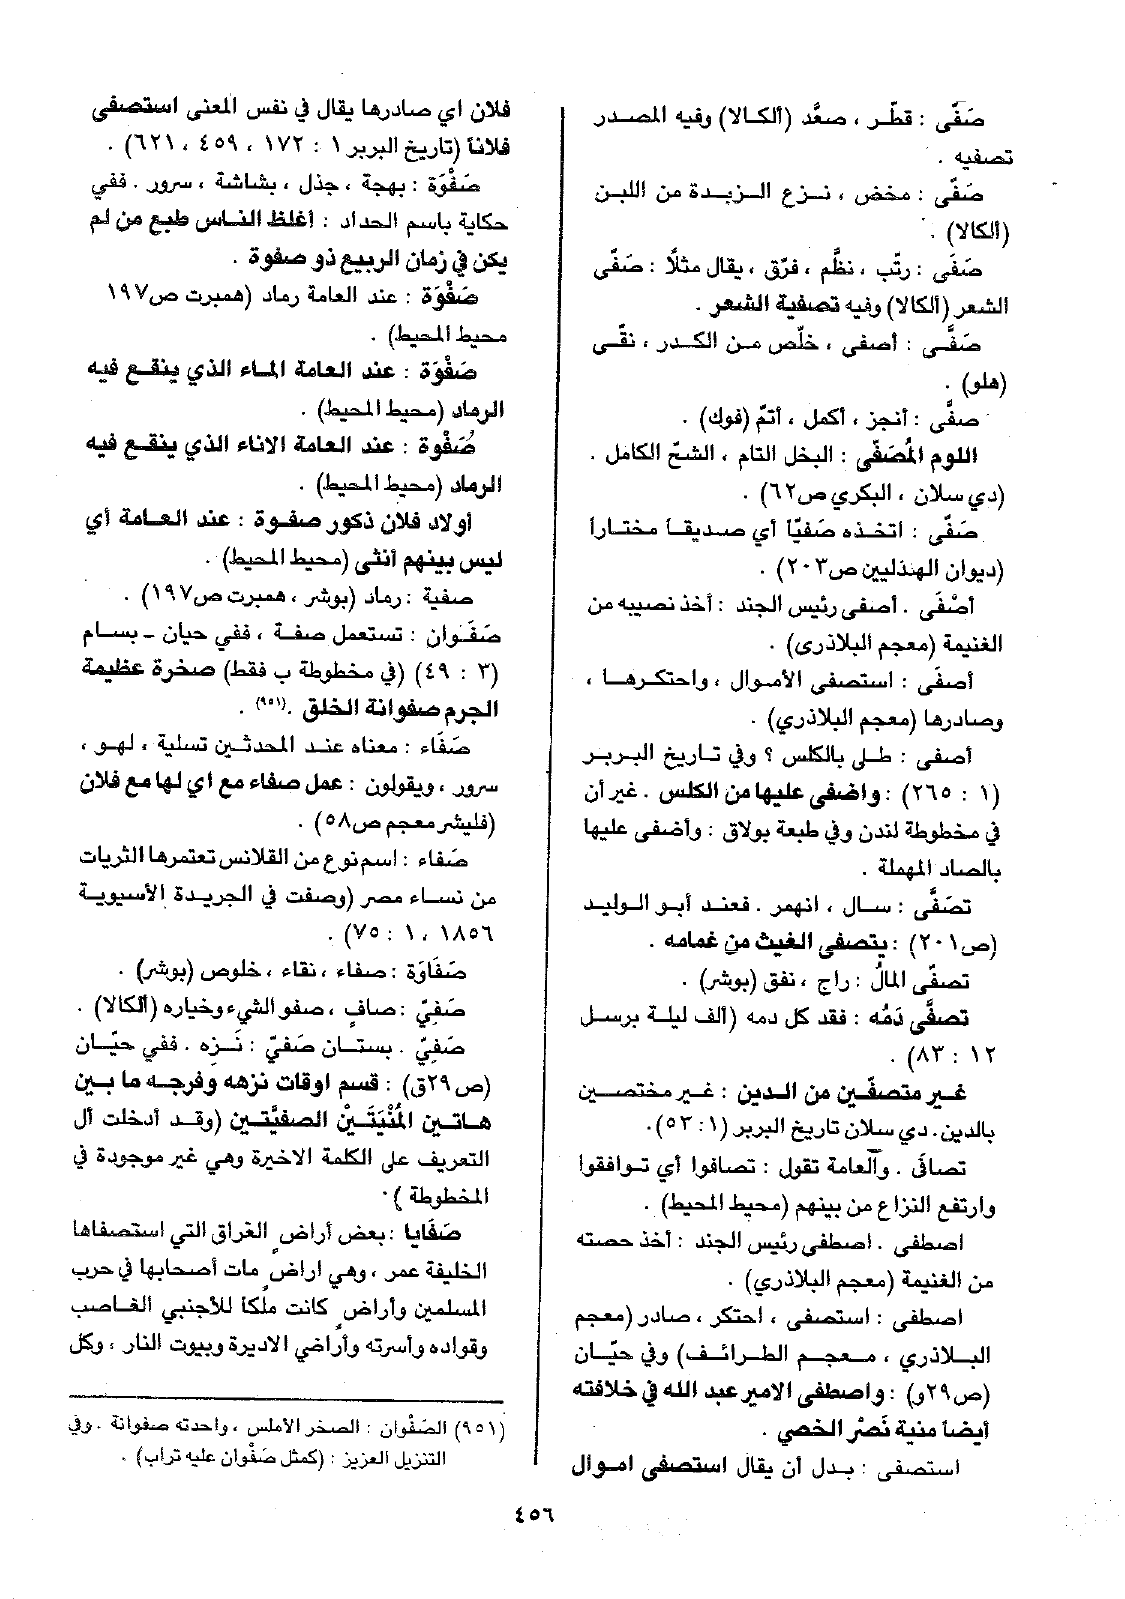 صَفّى : قطّر ، صعَّد (ألكالا) وفيه المصدر
تصفيه .
صَفّى : مخض ، نزع الزبدة من اللبن
(ألكالا) .
صَفّى : رتّب ، نظَّم ، فرّق ، يقال مثلًا : صَفّى
الشعر (ألكالا) وفيه تصفية الشعر .
صَفَّى : أصفى ، خلّص من الكدر ، نقّى
(هلو) .
صفَّى : أنجز ، أكمل ، أتمّ (فوك) .
اللوم المُصَفّى : البخل التام ، الشحّ الكامل .
(دي سلان ، البكري ص٦٢) .
صَفّى : اتخذه صَفيّاً أي صديقاً مختاراً
(ديوان الهذليين ص٢٠٣) .
أصْفَى . أصفى رئيس الجند : أخذ نصيبه من
الغنيمة (معجم البلاذري) .
أصفَى : استصفى الأموال ، واحتكرها ،
وصادرها (معجم البلاذري) .
أصفى : طلى بالكلس ؟ وفي تاريخ البربر
(١ : ٢٦٥) : واضفى عليها من الكلس . غير أن
في مخطوطة لندن وفي طبعة بولاق : وأضفى عليها
بالصاد المهملة .
تصَفَّى : سال ، انهمر . فعند أبو الوليد
(ص٢٠١) : يتصفى الغيث من غمامه .
تصفّى المالُ : راج ، نفق (بوشر) .
تصفَّى دَمُه : فقد كل دمه (ألف ليلة برسل
١٢ : ٨٣) .
غير متصفّين من الدين : غير مختصين
بالدين. دي سلان تاريخ البربر (١ : ٥٣).
تصافَى . والعامة تقول : تصافوا أي توافقوا
وارتفع النزاع من بينهم (محيط المحيط) .
اصطفى . اصطفى رئيس الجند : أخذ حصته
من الغنيمة (معجم البلاذري) .
اصطفى : استصفى ، احتكر ، صادر (معجم
البلاذري ، معجم الطرائف) وفي حيّان
(ص٢٩و) : واصطفى الامير عبد الله في خلافته
أيضاً منية نَصْر الخصي .
استصفى : بدل أن يقال استصفى اموال
فلان اي صادرها يقال في نفس المعنى استصفى
فلاناً (تاريخ البربر ١ : ١٧٢ ، ٤٥٩ ، ٦٢١) .
صَفْوَة : بهجة ، جذل ، بشاشة ، سرور . ففي
حكاية باسم الحداد : أغلظ الناس طبع من لم
يكن في زمان الربيع ذو صفوة .
صَفْوَة : عند العامة رماد (همبرت ص١٩٧
محيط المحيط) .
صَفْوَة : عند العامة الماء الذي ينقع فيه
الرماد (محيط المحيط) .
صُفْوة : عند العامة الاناء الذي ينقع فيه
الرماد (محيط المحيط) .
أولاد فلان ذكور صفوة : عند العامة أي
ليس بينهم أنثى (محيط المحيط) .
صفية : رماد (بوشر ، همبرت ص١٩٧) .
صَفَوان : تستعمل صفة ، ففي حيان ـ بسام
(٣ : ٤٩) (في مخطوطة ب فقط) صخرة عظيمة
الجرم صفوانة الخلق .(٩٥١) .
صَفَاء : معناه عند المحدثين تسلية ، لهو ،
سرور ، ويقولون : عمل صفاء مع أي لها مع فلان
(فليشر معجم ص٥٨) .
صَفاء : اسم نوع من القلانس تعتمرها الثريات
من نساء مصر (وصفت في الجريدة الأسيوية
١٨٥٦ ، ١ : ٧٥) .
صَفَاوَة : صفاء ، نقاء ، خلوص (بوشر) .
صَفِيّ : صافٍ ، صفو الشيء وخياره (ألكالا) .
صَفِيّ . بستان صَفيّ : نَزِه . ففي حيّان
(ص٢٩ق) : قسم اوقات نزهه وفرجه ما بين
هاتين المُنْيَتَيْن الصفيَّتين (وقد أدخلت أل
التعريف على الكلمة الاخيرة وهي غير موجودة في
المخطوطة ).
صَفَايا : بعض أراضٍ العراق التي استصفاها
الخليفة عمر ، وهي اراضٍ مات أصحابها في حرب
المسلمين وأراضٍ كانت ملكاً للأجنبي الغاصب
وقواده وأسرته وأراضي الاديرة وبيوت النار ، وكل
(٩٥١) الصَفْوان : الصخر الاملس ، واحدته صفوانة . وفي
التنزيل العزيز : (كمثل صَفْوان عليه تراب) .
٤٥٦